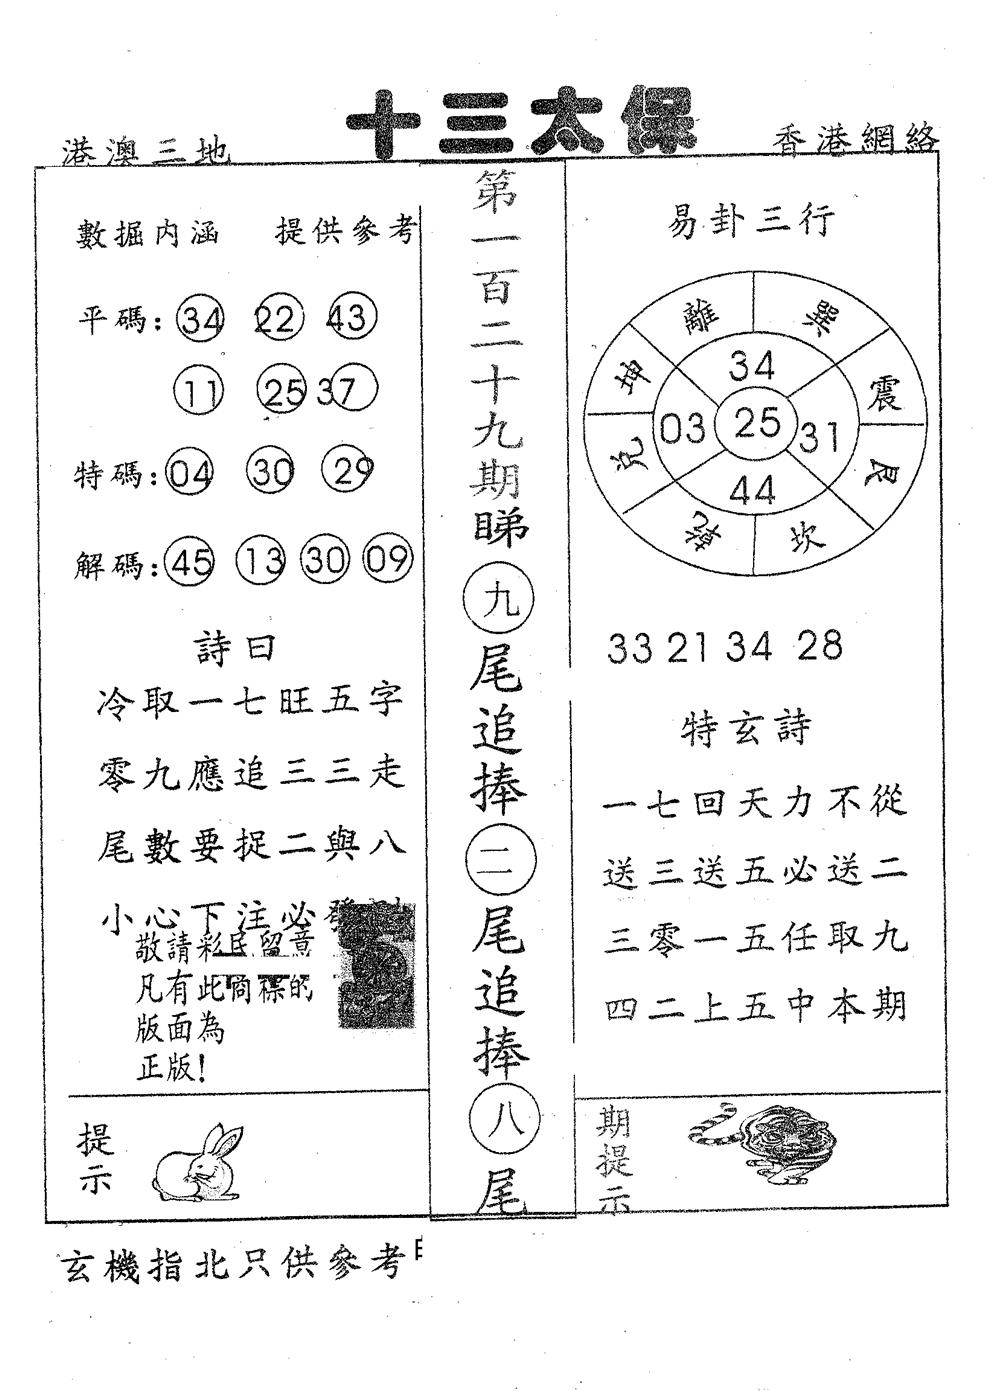 十三太保
港澳三地
香港網絡
數掘內涵 提供參考
平碼: 34 22 43
11 25 37
特碼: 04 30 29
解碼: 45 13 30 09
詩曰
冷取一七旺五字
零九應追三三走
尾數要捉二與八
小心下注必發
敬請彩民留意
凡有此商標的
版面為
正版!
提示
第一百二十九期睇九尾追捧二尾追捧八尾
易卦三行
離 巽
坤 震
兌 艮
乾 坎
34
03 25 31
44
33 21 34 28
特玄詩
一七回天力不從
送三送五必送二
三零一五任取九
四二上五中本期
期提示
玄機指北只供參考